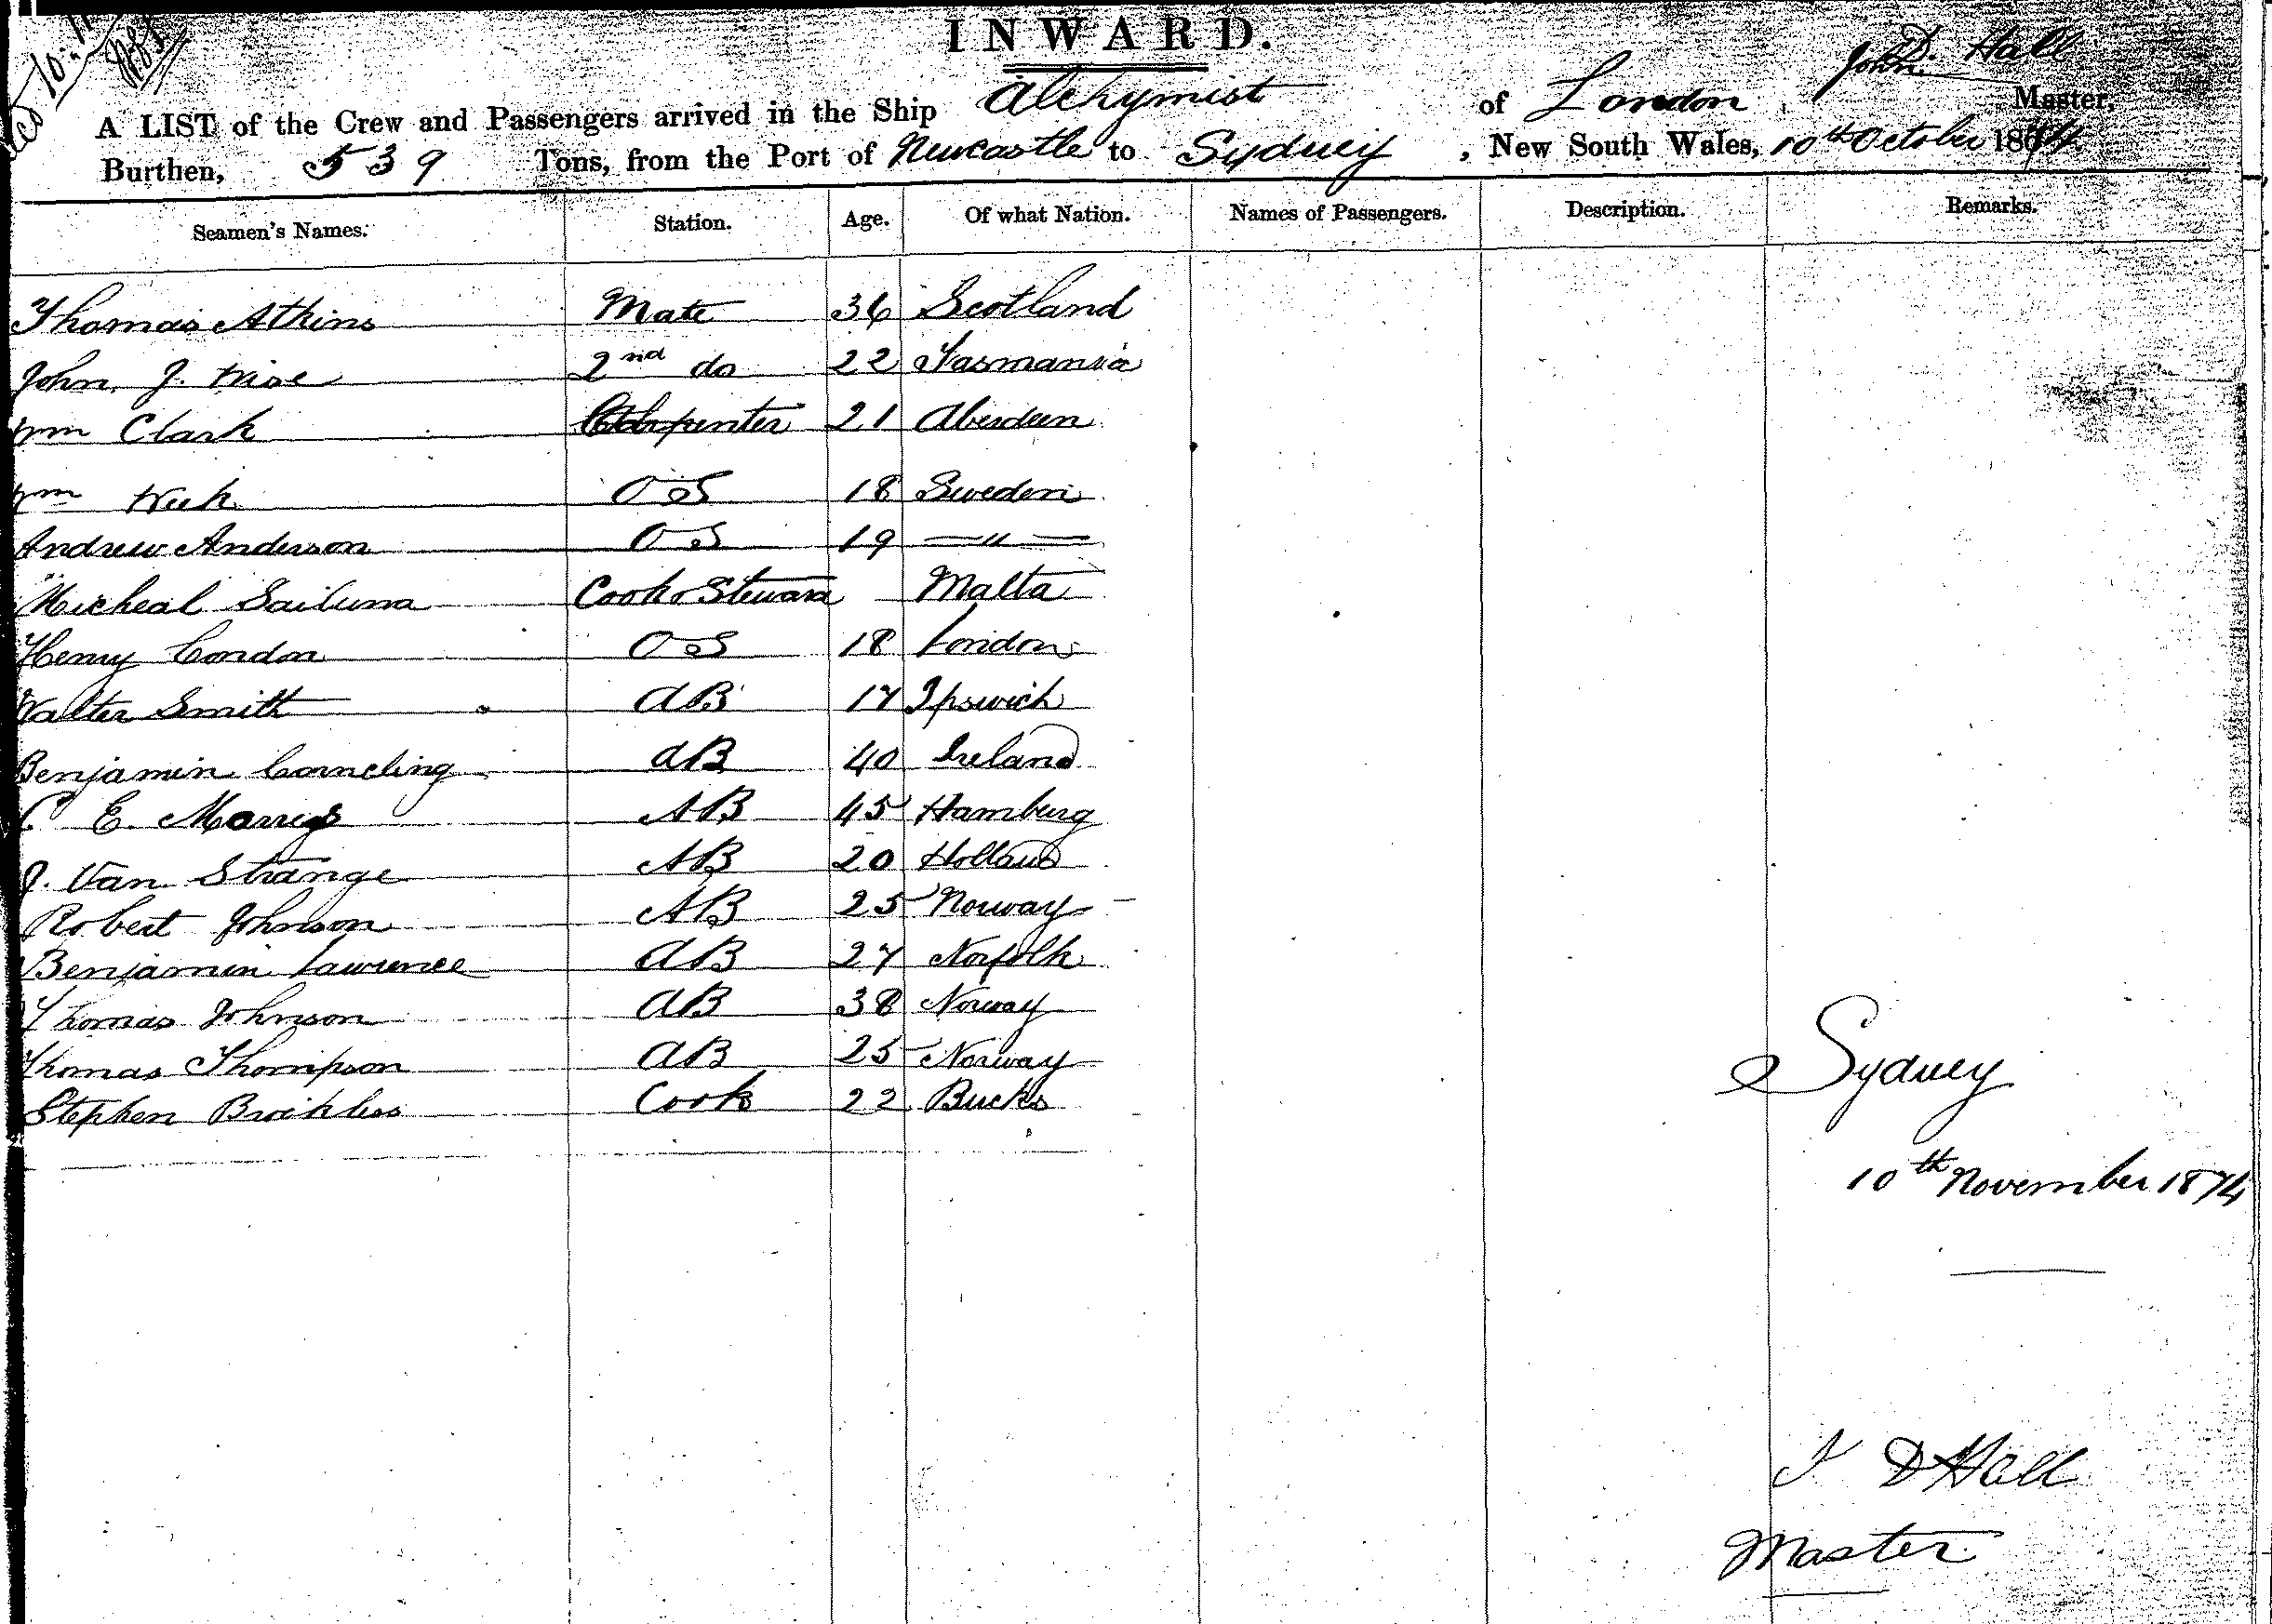 INWARD.
John D. Hall
A LIST of the Crew and Passengers arrived in the Ship Alchymist of London, Master,
Burthen, 539 Tons, from the Port of Newcastle to Sydney, New South Wales, 10th October 1874
Seamen's Names. Station. Age. Of what Nation. Names of Passengers. Description. Remarks.
Thomas Atkins Mate 36 Scotland
John J. 2nd do 22 Tasmania
Wm Clark Carpenter 21 Aberdeen
Wm OS 18 Sweden
Andrew Anderson OS 19 — " —
Micheal Cook & Steward Malta
Henry Condon OS 18 London
Walter Smith AB 17 Ipswich
Benjamin AB 40 Ireland
C E. AB 45 Hamburg
J. Van Strange AB 20 Holland
Robert Johnson AB 25 Norway
Benjamin Lawrence AB 27 Norfolk
Thomas Johnson AB 38 Norway
Thomas Thompson AB 25 Norway
Stephen Cook 22 Bucks
Sydney
10th November 1874
J D Hall
Master